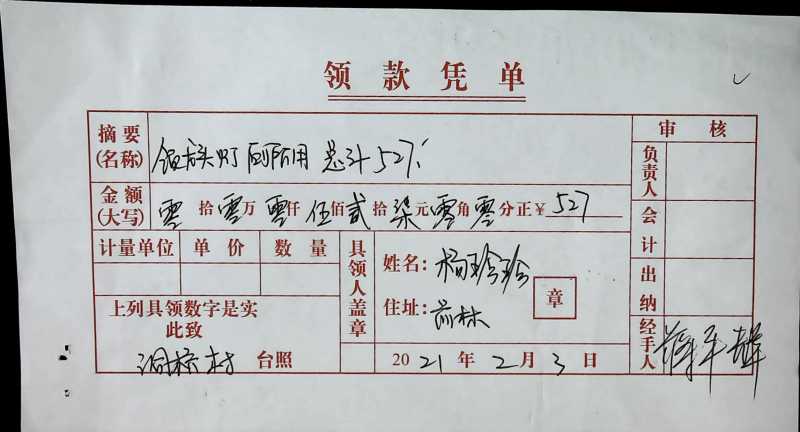 领款凭单
摘要(名称) 总计527.
金额(大写) 零拾零万零仟伍佰贰拾柒元零角零分正¥527
审核
负责人
会计
出纳
经手人
计量单位 单价 数量
具领人盖章
姓名：杨玲玲
住址：前林
章
上列具领数字是实
此致
村 台照
2021年2月3日